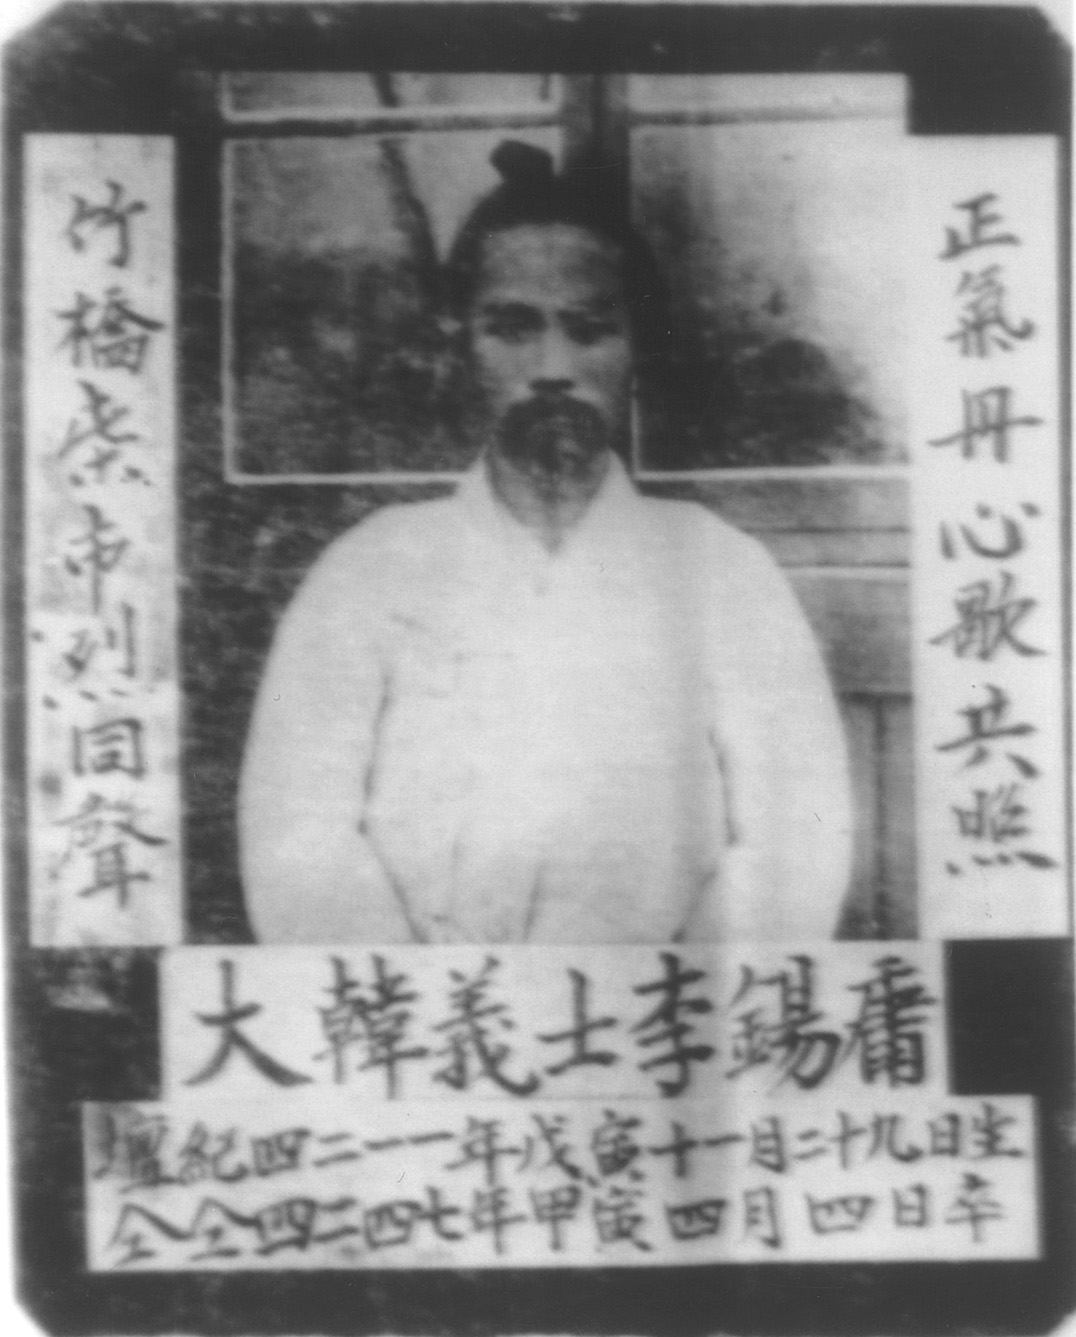 正氣丹心歌共照
竹橋柴市烈同聲
大韓義士李錫庸
壇紀四二一一年戊寅十一月二十九日生
仝仝四二四七年甲寅四月四日卒